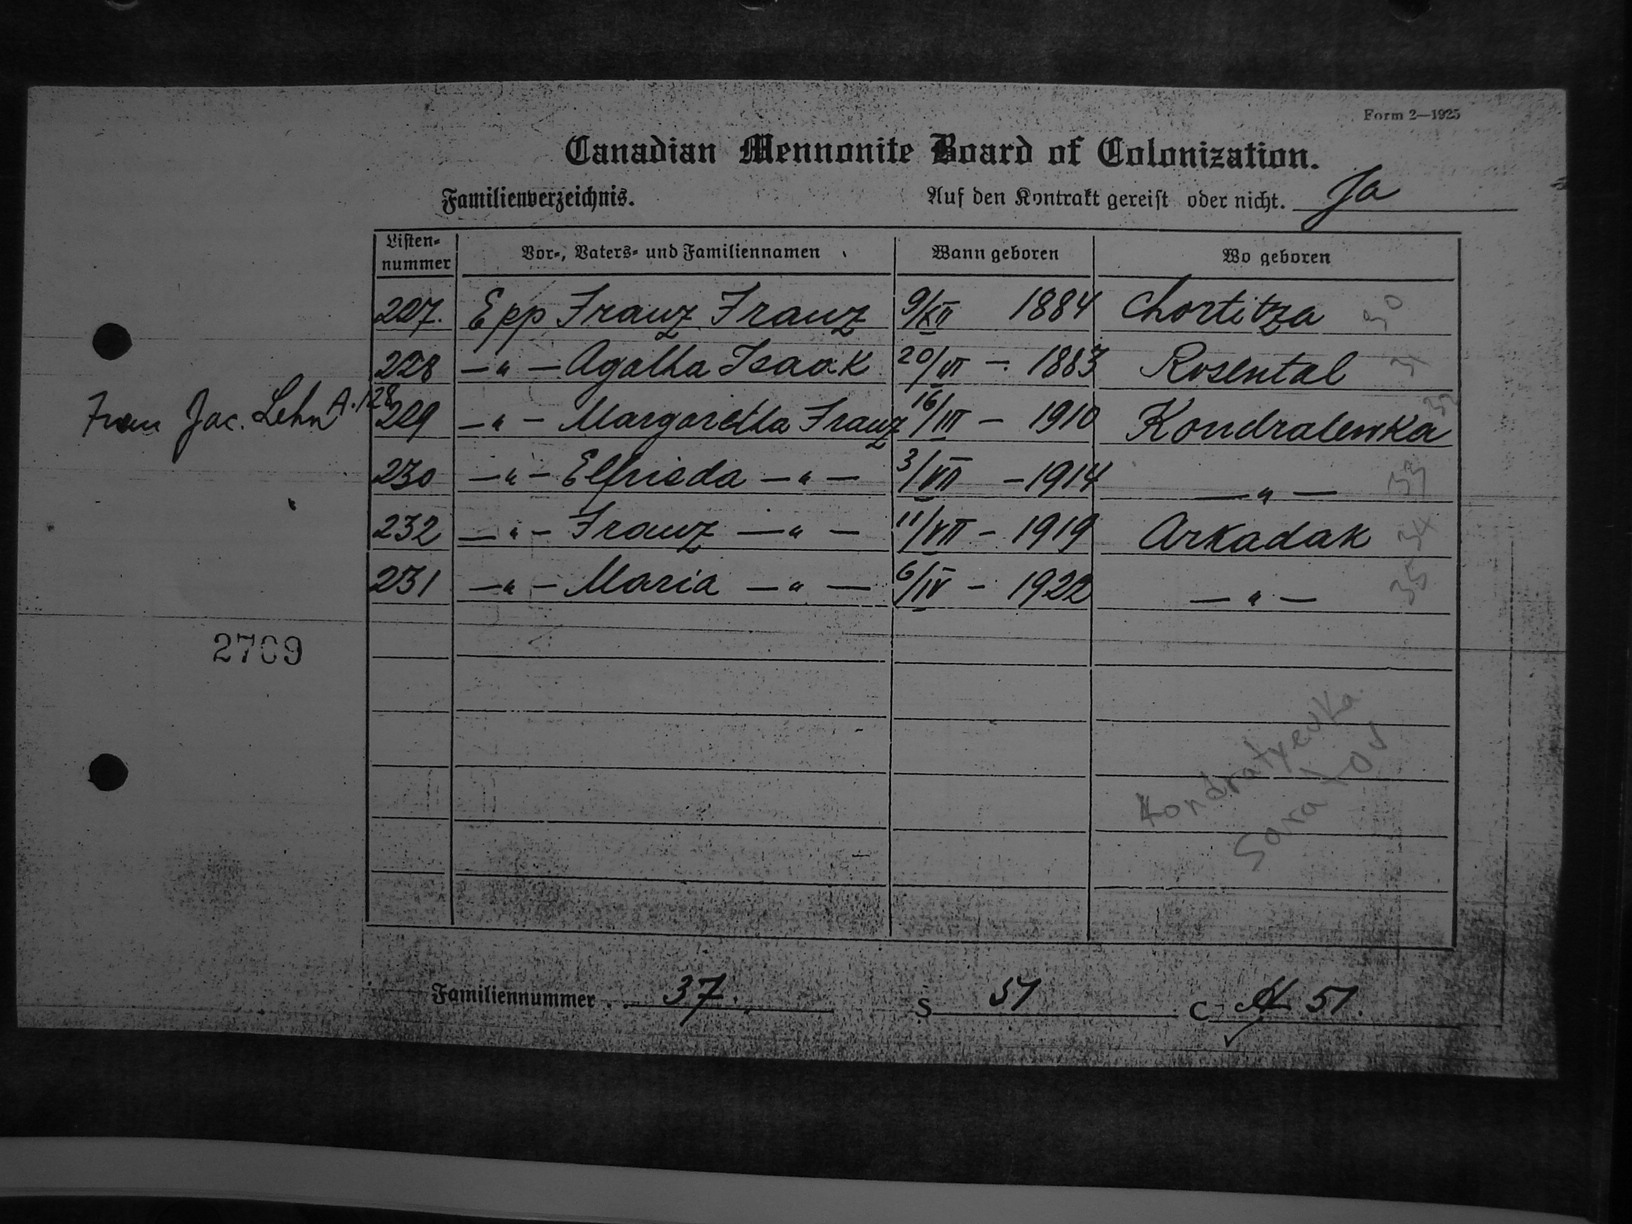 Form 2—1925
Canadian Mennonite Board of Colonization.
Familienverzeichnis. Auf den Kontrakt gereist oder nicht. Ja
Listen-nummer Vor-, Vaters- und Familiennamen Wann geboren Wo geboren
227. Epp Franz Franz 9/XII 1884 Chortitza 30
228 —"— Agatha Isaak 20/VI — 1883 Rosental 31
Frau Jac. Lehn A.128 229 —"— Margaretha Franz 16/III — 1910 Kondratewka 32
230 —"— Elfrieda —"— 3/VII — 1914 —"— 33
232 —"— Franz —"— 11/VII — 1919 Arkadak 34
231 —"— Maria —"— 6/IV — 1922 —"— 35
2709
Kondratyevka
Saratov
Familiennummer 37. S 51 C 51.